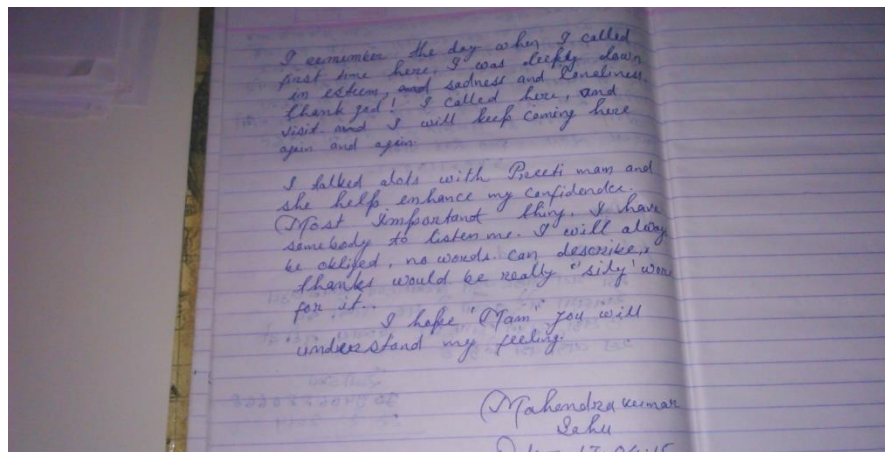 I remember the day when I called
first time here, I was deeply down
in esteem, and sadness and loneliness.
thank god! I called here, and
visit and I will keep coming here
again and again.
I talked alots with Preeti mam and
she help enhance my confidendce.
Most important thing, I have
somebody to listen me. I will alway
be obliged, no words can describe,
thanks would be really "sily' wor
for it..
I hope "Mam" you will
understand my feeling.
Mahendra kumar
Sahu